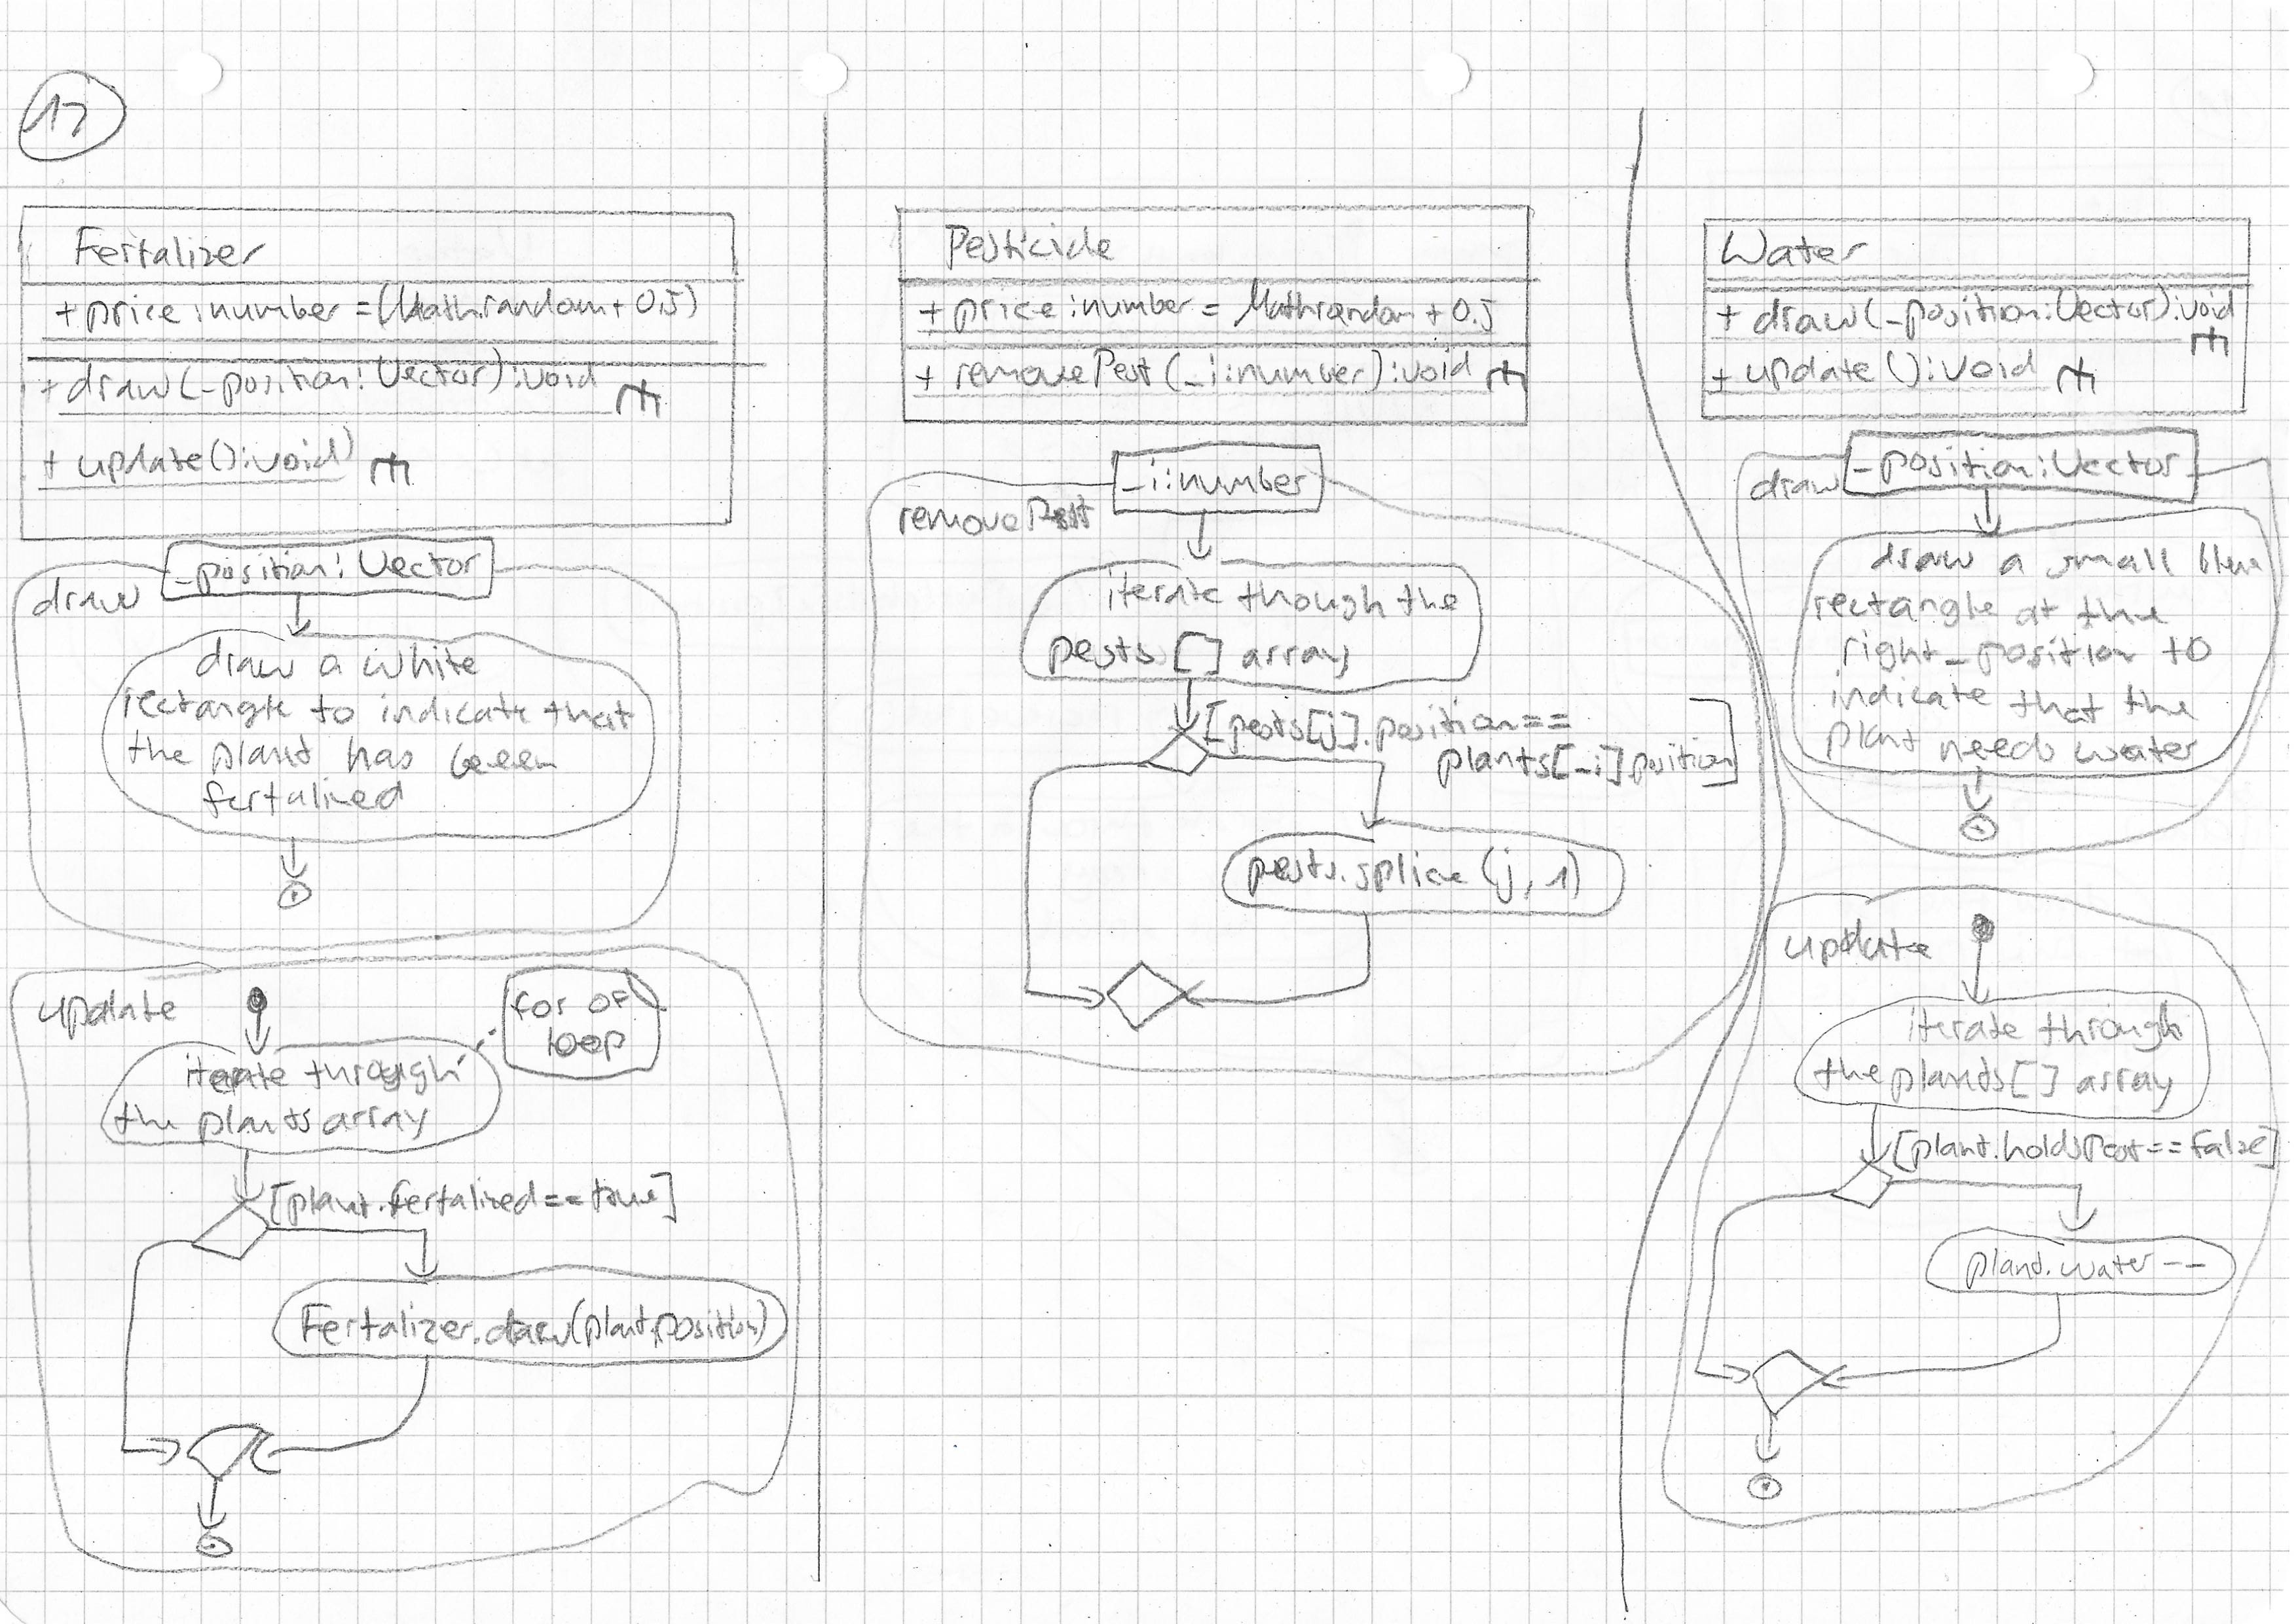 17
Fertalizer
+ price : number = (Math.random + 0.5)
+ draw (_position: Vector) : void
+ update () : void)
draw
_position: Vector
draw a white
rectangle to indicate that
the plant has been
fertalized
update
for of
loop
iterate through
the plants array
[plant.fertalized == true]
Fertalizer.draw(plant.position)
Pesticide
+ price : number = Math.random + 0.5
+ removePest (_i : number) : void
_i : number
removePest
iterate though the
pests [] array
[pests[j].position ==
plants[_i] position]
pests.splice (j, 1)
Water
+ draw (_position: Vector) : void
+ update () : void
draw
_position: Vector
draw a small blue
rectangle at the
right _position to
indicate that the
plant needs water
update
iterate through
the plants [] array
[plant.holdsPest == false]
plant.water --